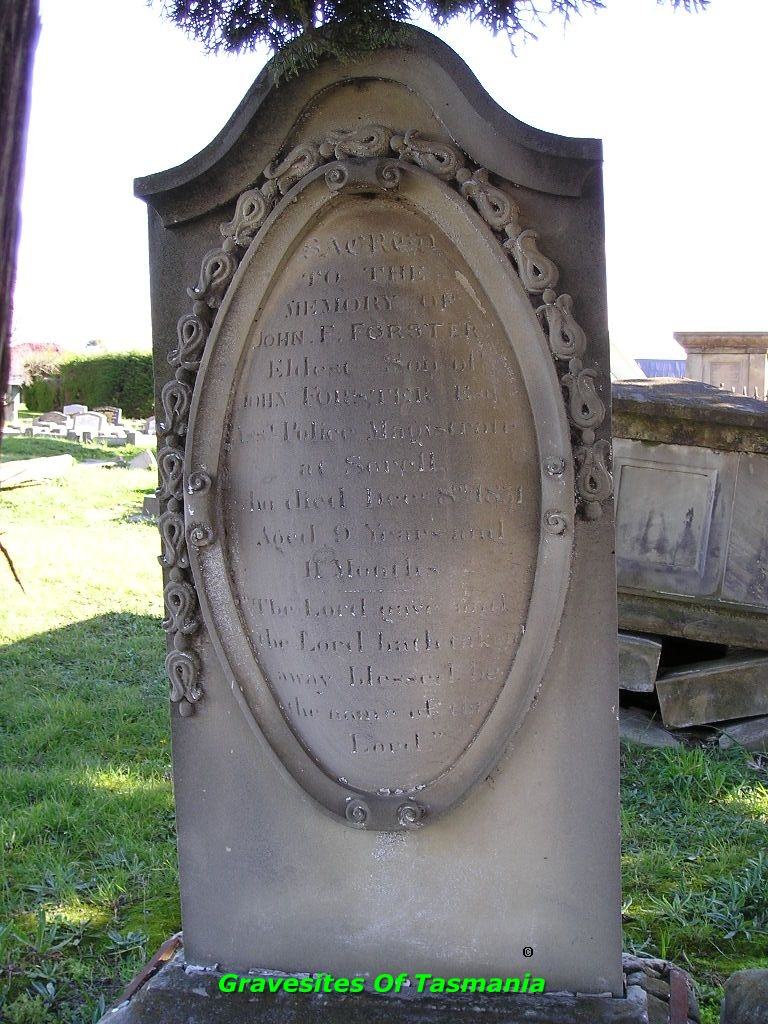 SACRED
TO THE
MEMORY OF
JOHN F. FORSTER
Eldest Son of
JOHN FORSTER Esqr
Asst Police Magistrate
at Sorell
who died Decr 8th 1831
Aged 9 Years and
11 Months
"The Lord gave and
the Lord hath taken
away blessed be
the name of the
Lord"
©
Gravesites Of Tasmania